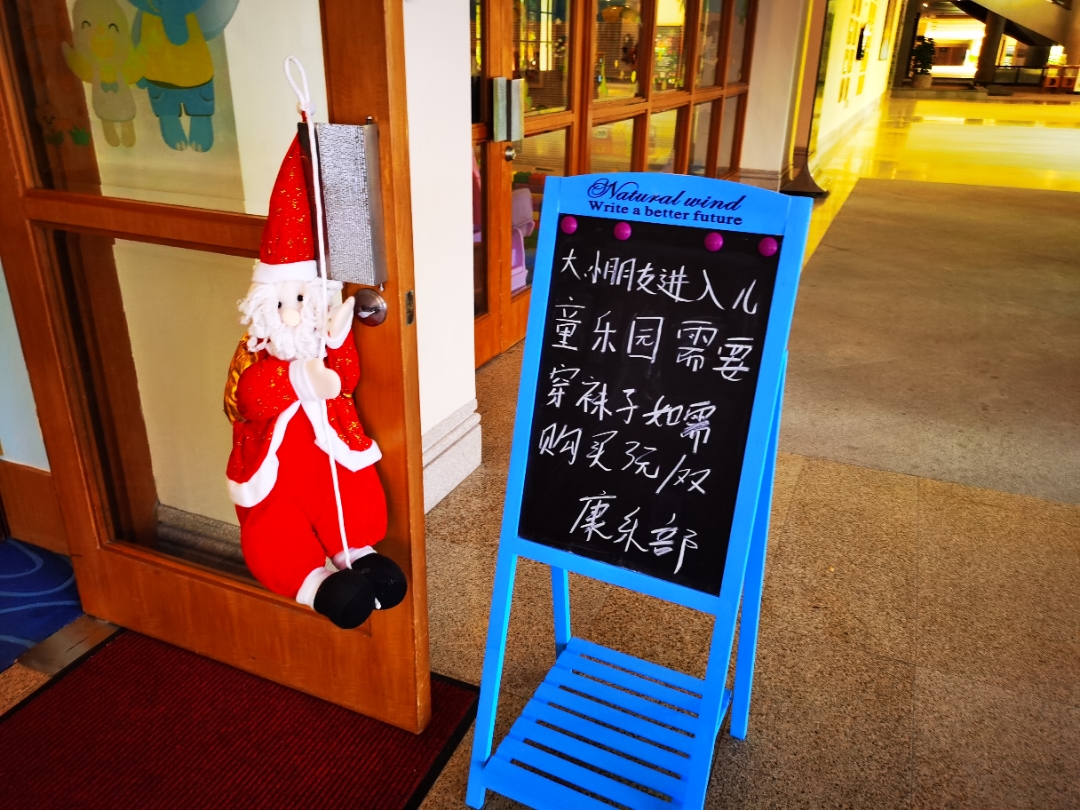 Natural wind
Write a better future
大小朋友进入儿
童乐园需要
穿袜子如需
购买5元/双
康乐部